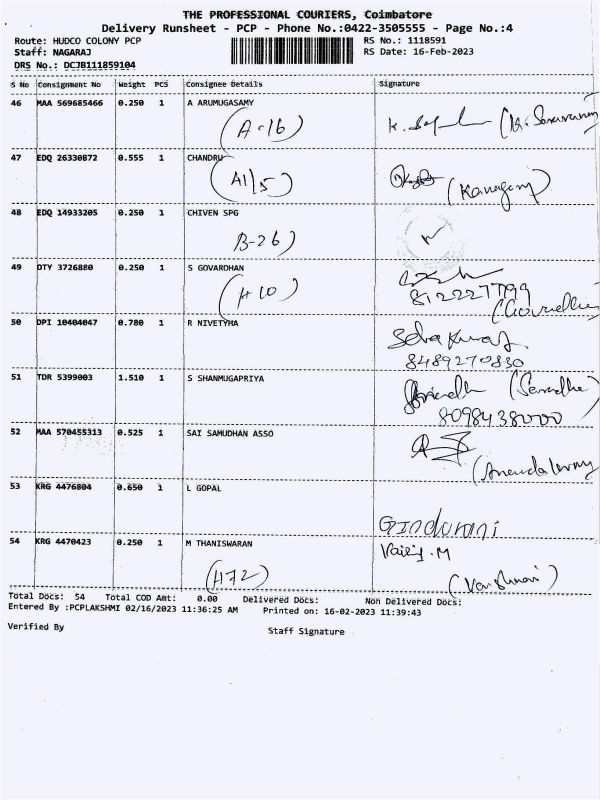 THE PROFESSIONAL COURIERS, Coimbatore
Delivery Runsheet - PCP - Phone No.:0422-3505555 - Page No.:4
Route: HUDCO COLONY PCP RS No.: 1118591
Staff: NAGARAJ RS Date: 16-Feb-2023
DRS No.: DCJB111859104
S No Consignment No Weight PCS Consignee Details Signature
46 MAA 569685466 0.250 1 A ARUMUGASAMY
(A-16)
47 EDQ 26330872 0.555 1 CHANDRU
(A1/5)
48 EDQ 14933205 0.250 1 CHIVEN SPG
B-26)
49 DTY 3726880 0.250 1 S GOVARDHAN
(H 10) 8122227799
50 DPI 10404047 0.780 1 R NIVETYHA
8489270830
51 TDR 5399003 1.510 1 S SHANMUGAPRIYA
8098438000
52 MAA 570455313 0.525 1 SAI SAMUDHAN ASSO
53 KRG 4476804 0.650 1 L GOPAL
54 KRG 4470423 0.250 1 M THANISWARAN
(H72)
Total Docs: 54 Total COD Amt: 0.00 Delivered Docs: Non Delivered Docs:
Entered By :PCPLAKSHMI 02/16/2023 11:36:25 AM Printed on: 16-02-2023 11:39:43
Verified By Staff Signature